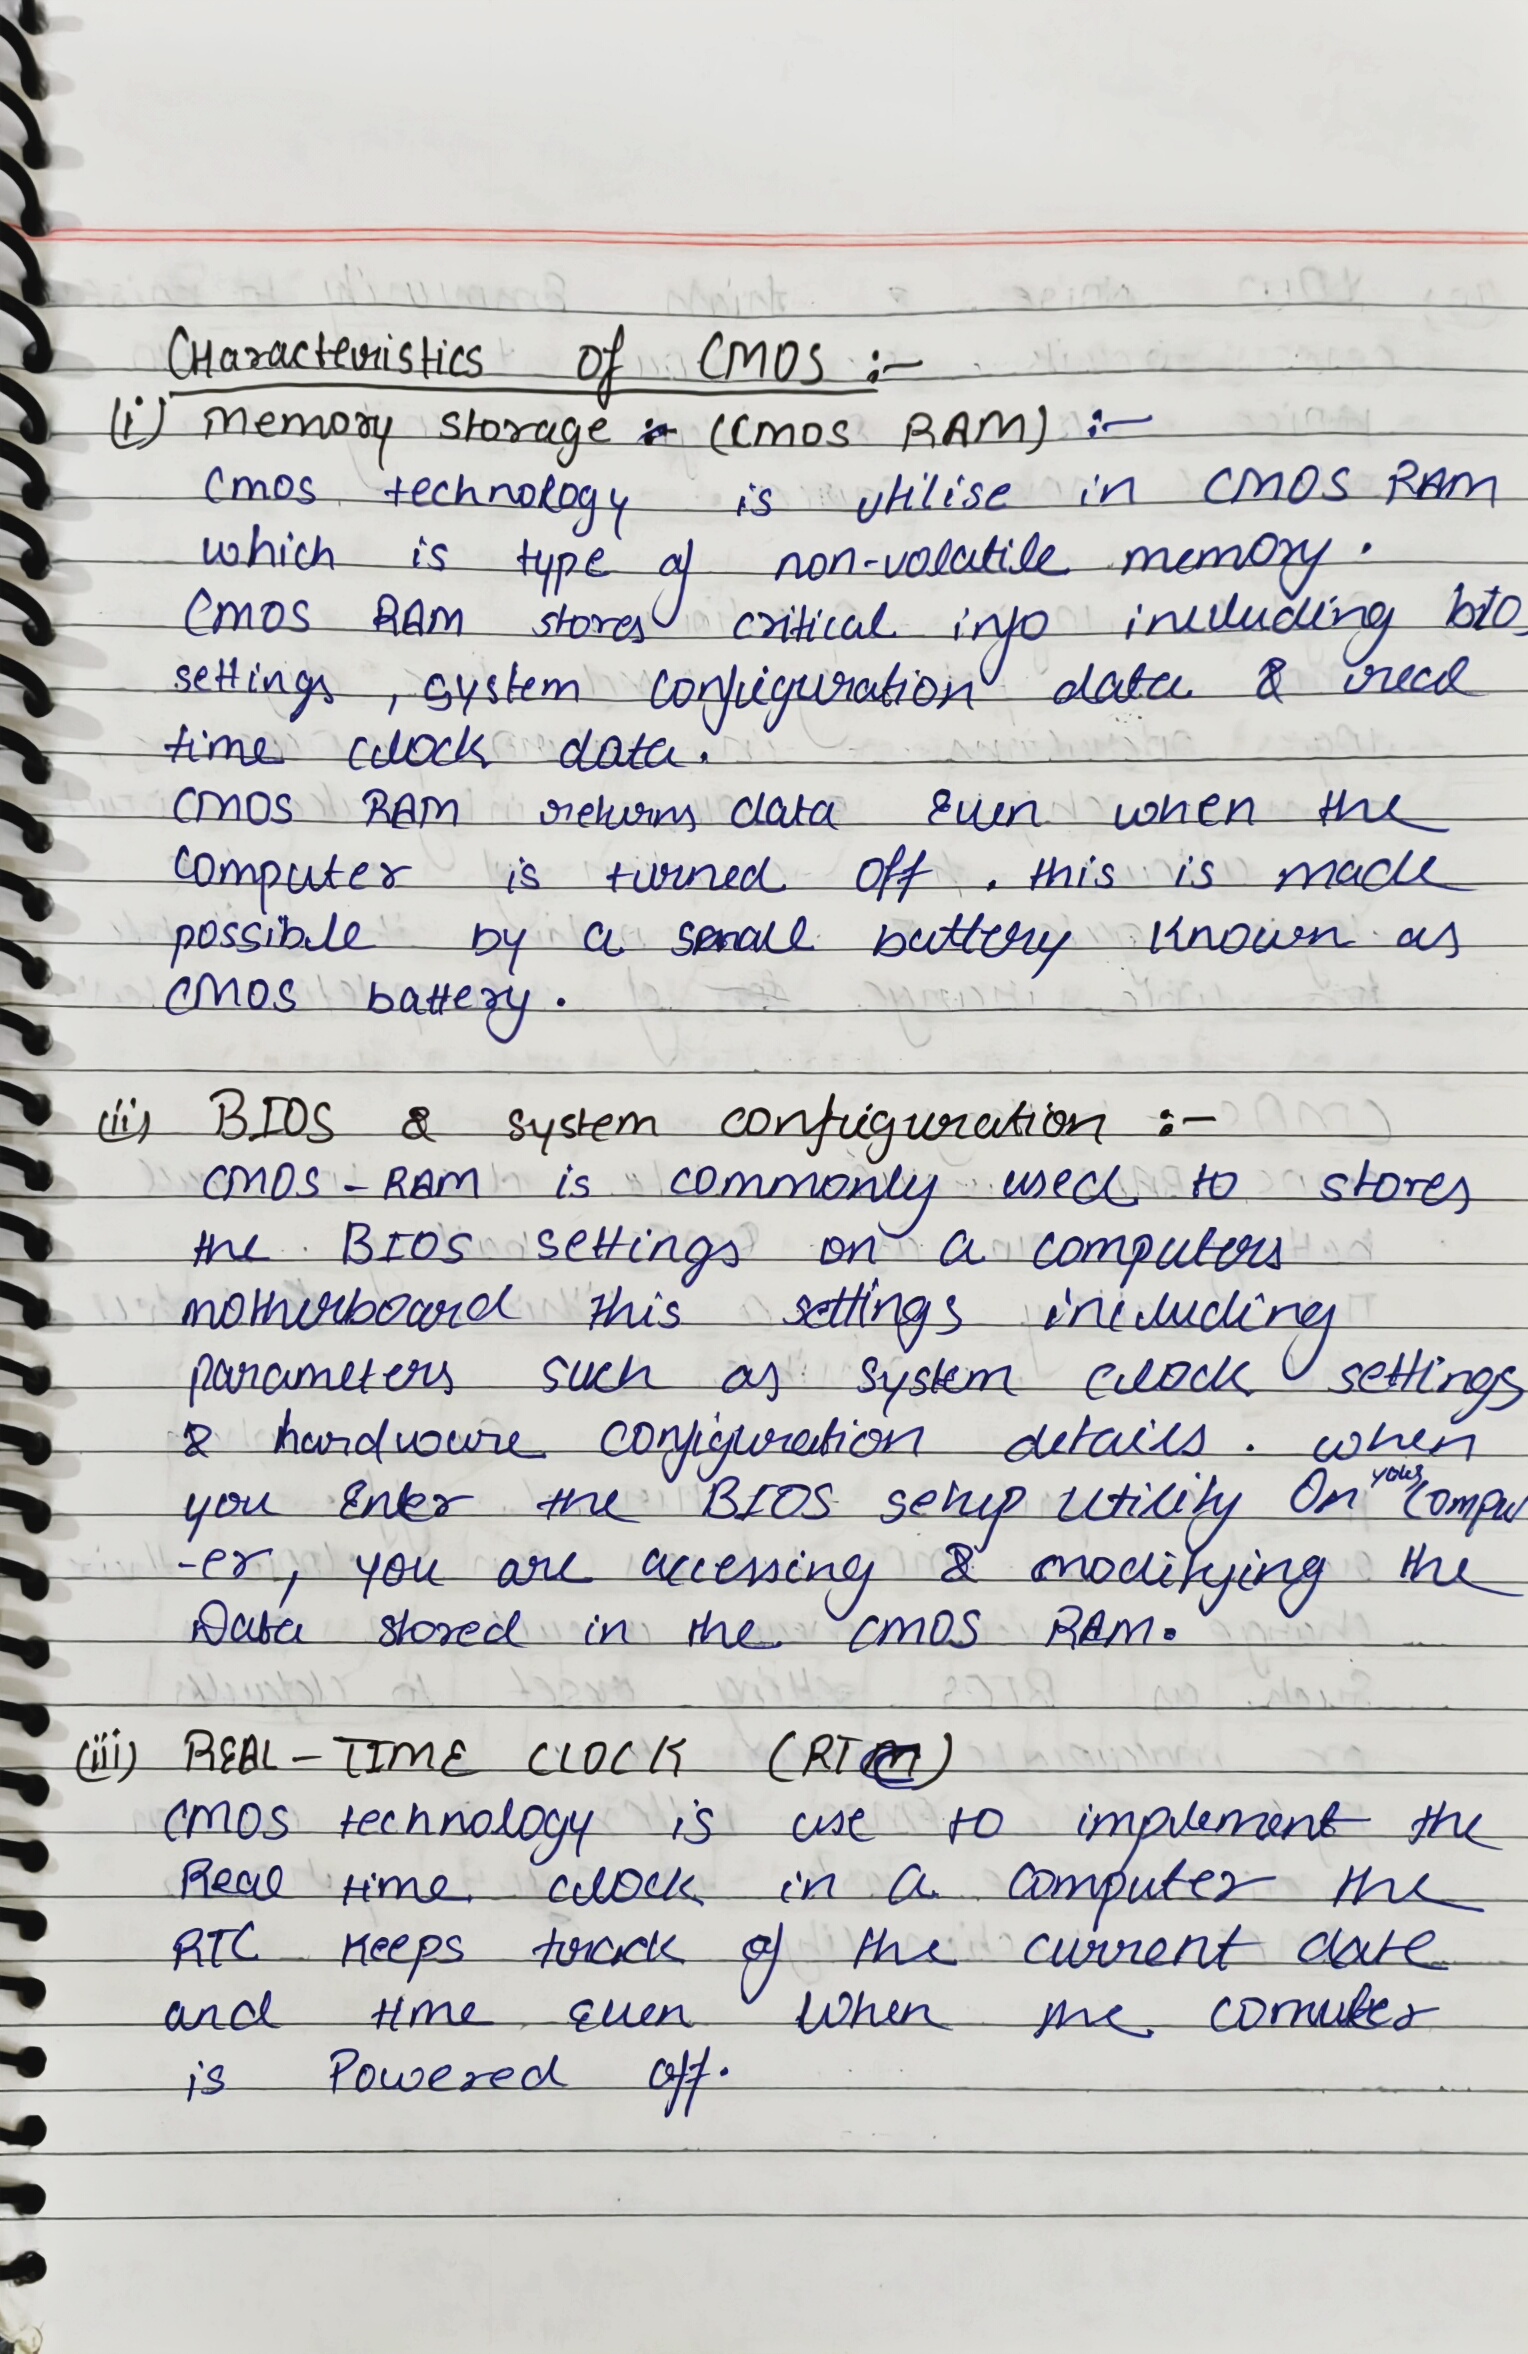 Characteristics of CMOS :-
(i) Memory storage :- (CMOS RAM) :-
Cmos technology is utilise in CMOS RAM
which is type of non-volatile memory.
CMOS RAM stores critical info including bio
settings, system configuration data & real
time clock data.
CMOS RAM returns data Even when the
computer is turned off. this is made
possible by a small battery known as
CMOS battery.
(ii) BIOS & system configuration :-
CMOS - RAM is commonly used to stores
the BIOS settings on a computers
motherboard this settings including
parameters such as system clock settings
& hardware configuration details. when
you Enter the BIOS setup utility On your Comput
-er, you are accessing & modifying the
Data stored in the CMOS RAM.
(iii) REAL-TIME CLOCK (RTC)
CMOS technology is use to implement the
Real time clock in a computer the
RTC keeps track of the current date
and time Even When the comuter
is Powered off.